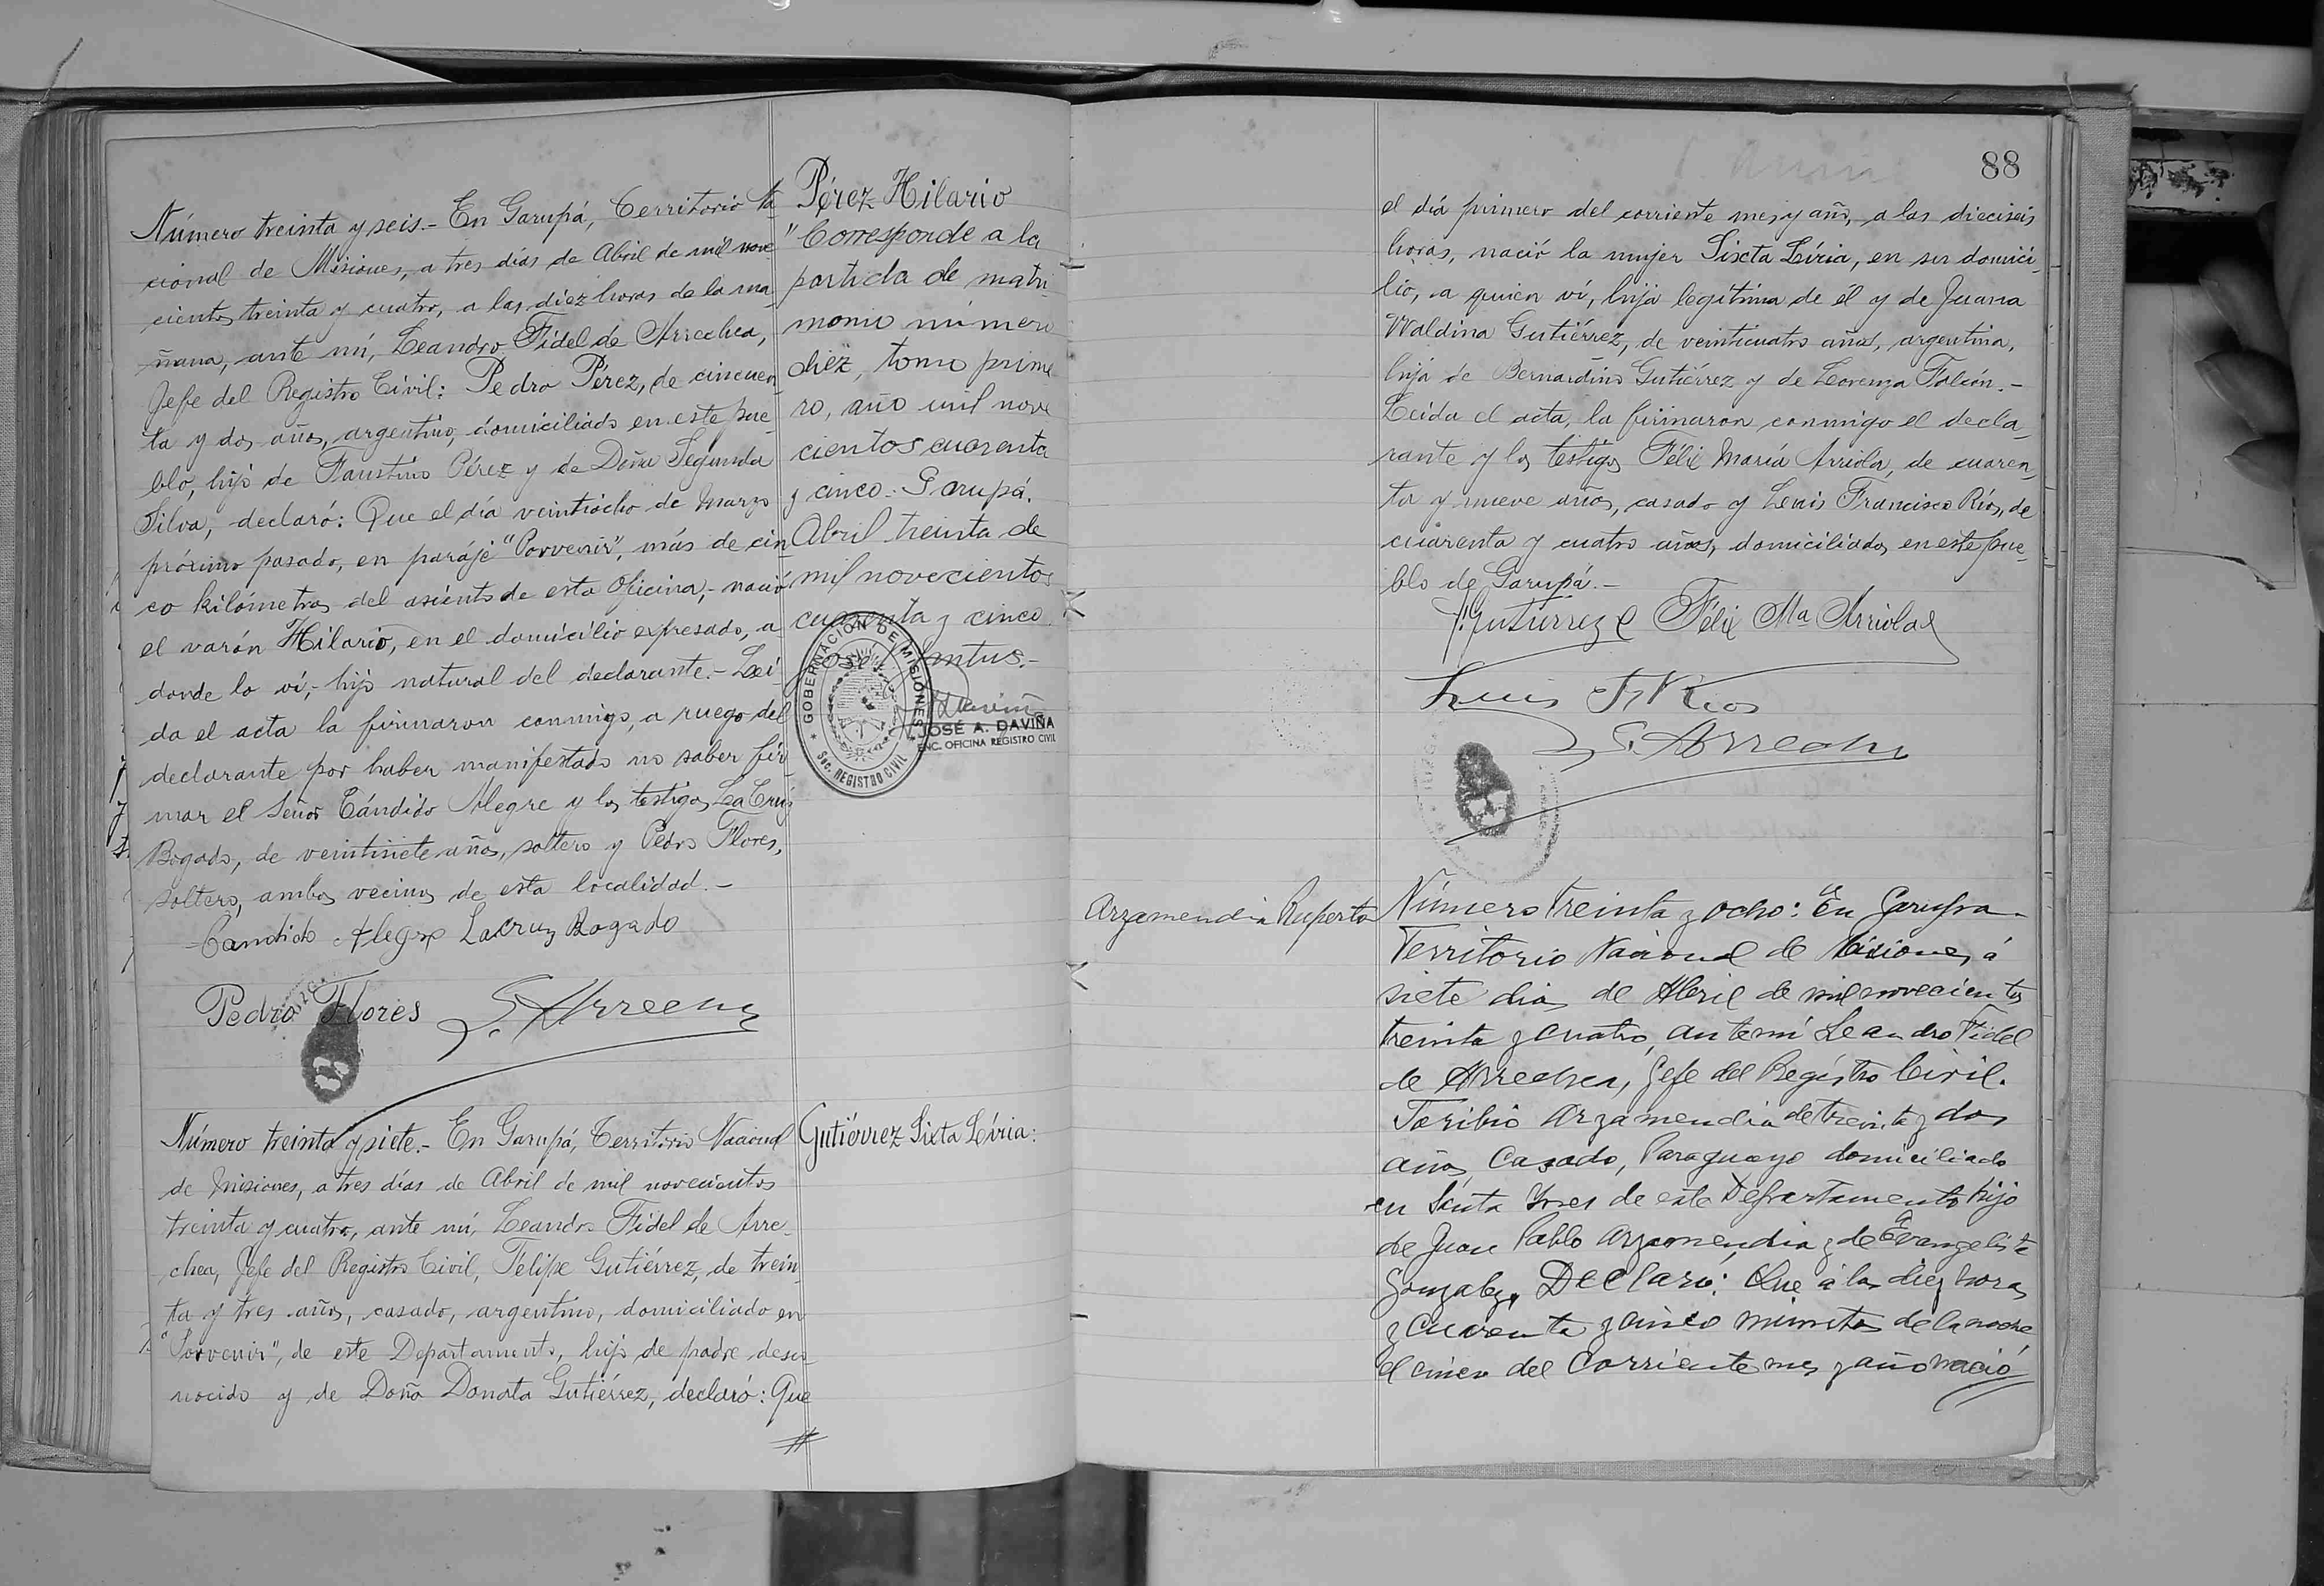 Número treinta y seis.- En Garupá, Territorio Na
cional de Misiones, a tres días de Abril de mil nove
cientos treinta y cuatro, a las diez horas de la ma
ñana, ante mí, Leandro Fidel de Arrechea,
Jefe del Registro Civil: Pedro Pérez, de cincuen
ta y dos años, argentino, domiciliado en este pue
blo, hijo de Faustino Pérez y de Doña Segunda
Silva, declaró: Que el día veintiocho de Marzo
próximo pasado, en paraje "Porvenir", más de cin
co kilómetros del asiento de esta Oficina,- nació
el varón Hilario, en el domicilio expresado, a
donde lo ví,- hijo natural del declarante.- Leí
da el acta la firmaron conmigo, a ruego del
declarante por haber manifestado no saber fir
mar el Señor Cándido Alegre y los testigos La Cruz
Bogado, de veintisiete años, soltero y Pedro Flores,
soltero, ambos vecinos de esta localidad.-
Candido Alegre Lacruz Bogado
Pedro Flores L. Arrechea
Pérez Hilario
"Corresponde a la
partida de matri
monio número
diez, tomo prime
ro, año mil nove
cientos cuarenta
y cinco. Garupá.
Abril treinta de
mil novecientos
cuarenta y cinco
GOBERNACIÓN DE MISIONES
Sec. REGISTRO CIVIL
JOSÉ A. DAVIÑA
ENC. OFICINA REGISTRO CIVIL
Número treinta y siete.- En Garupá, Territorio Nacional
de Misiones, a tres días de Abril de mil novecientos
treinta y cuatro, ante mí, Leandro Fidel de Arre
chea, Jefe del Registro Civil, Felipe Gutiérrez, de trein
ta y tres años, casado, argentino, domiciliado en
"Porvenir", de este Departamento, hijo de padre desco
nocido y de Doña Donata Gutiérrez, declaró: Que
Gutiérrez Sixta Líria:
88
el día primero del corriente mes y año, a las dieciseis
horas, nació la mujer Sixta Líria, en su domici
lio, a quien ví, hija legítima de él y de Juana
Waldina Gutiérrez, de veinticuatro años, argentina,
hija de Bernardino Gutiérrez y de Lorenza Falcón.-
Leída el acta, la firmaron conmigo el decla
rante y los testigos Félix María Arriola, de cuaren
ta y nueve años, casado y Luis Francisco Ríos, de
cuarenta y cuatro años, domiciliados en este pue
blo de Garupá.-
F. Gutierrez Félix Ma Arriola
Luis F. Rios
L. Arrechea
Arzamendia Ruperto
Número treinta y ocho: En Garupa
Territorio Nacional de Misiones, á
siete dias de Abril de mil novecientos
treinta y cuatro, ante mí Leandro Fidel
de Arrechea, Jefe del Registro Civil.
Toribio Arzamendia de treinta y dos
años, Casado, Paraguayo domiciliado
en Santa Ines de este Departamento hijo
de Juan Pablo Arzamendia y de Evangelista
Gonzalez, Declaró: Que á las diez horas
y cuarenta y cinco minutos de la noche
el cinco del Corriente mes y año nació